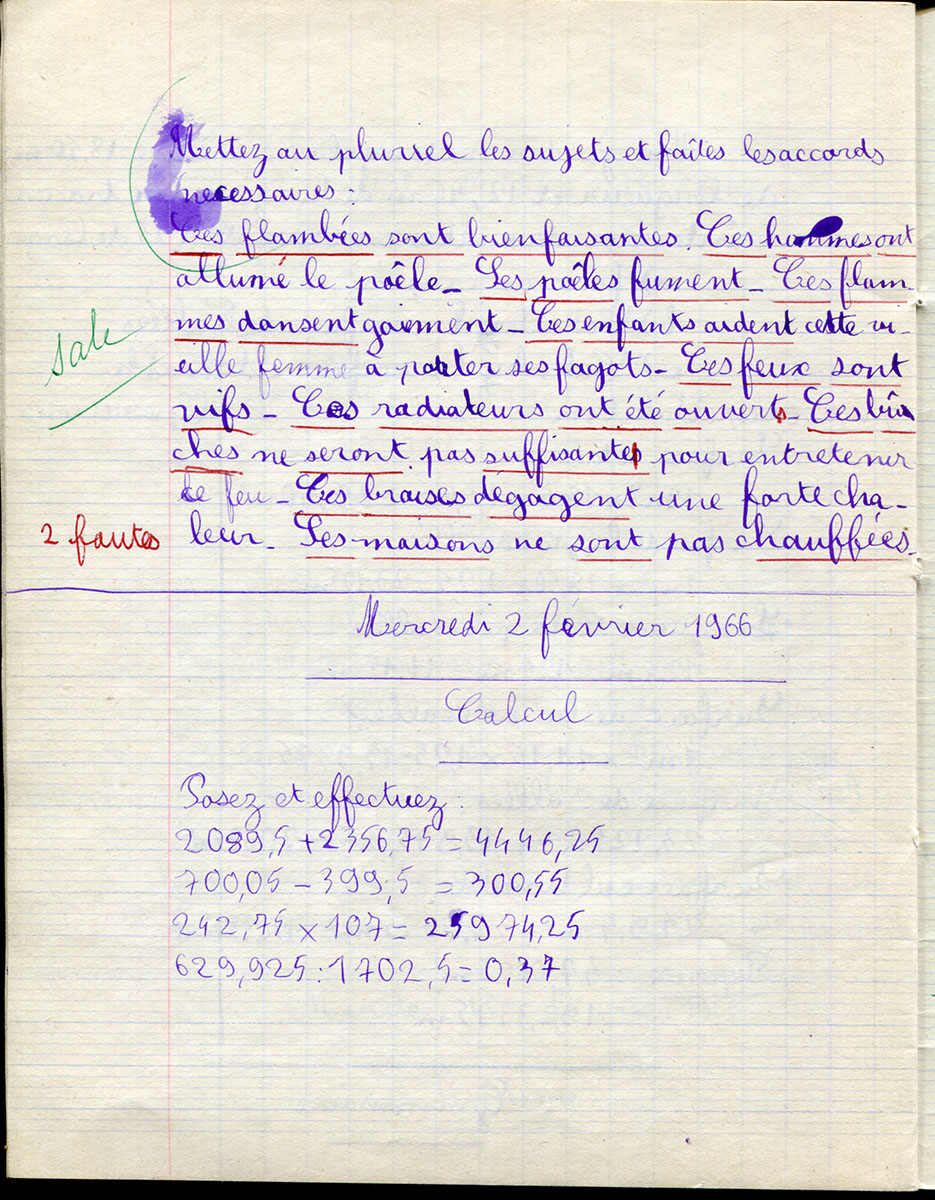 Mettez au pluriel les sujets et faîtes les accords
necessaires :
Ces flambées sont bienfaisantes. Ces hommes ont
allumé le poêle_ Les poêles fument_ Ces flam-
mes dansent gaiement_ Ces enfants aident cette vi-
eille femme à porter ses fagots_ Ces feux sont
sale
vifs_ Ces radiateurs ont été ouverts_ Ces bû
ches ne seront pas suffisantes pour entretenir
le feu_ Ces braises dégagent une forte cha-
2 fautes leur_ Les maisons ne sont pas chauffées_
Mercredi 2 février 1966
Calcul
Posez et effectuez :
2089,5 + 2356,75 = 4446,25
700,05 - 399,5 = 300,55
242,75 × 107 = 25974,25
629,925 : 1702,5 = 0,37